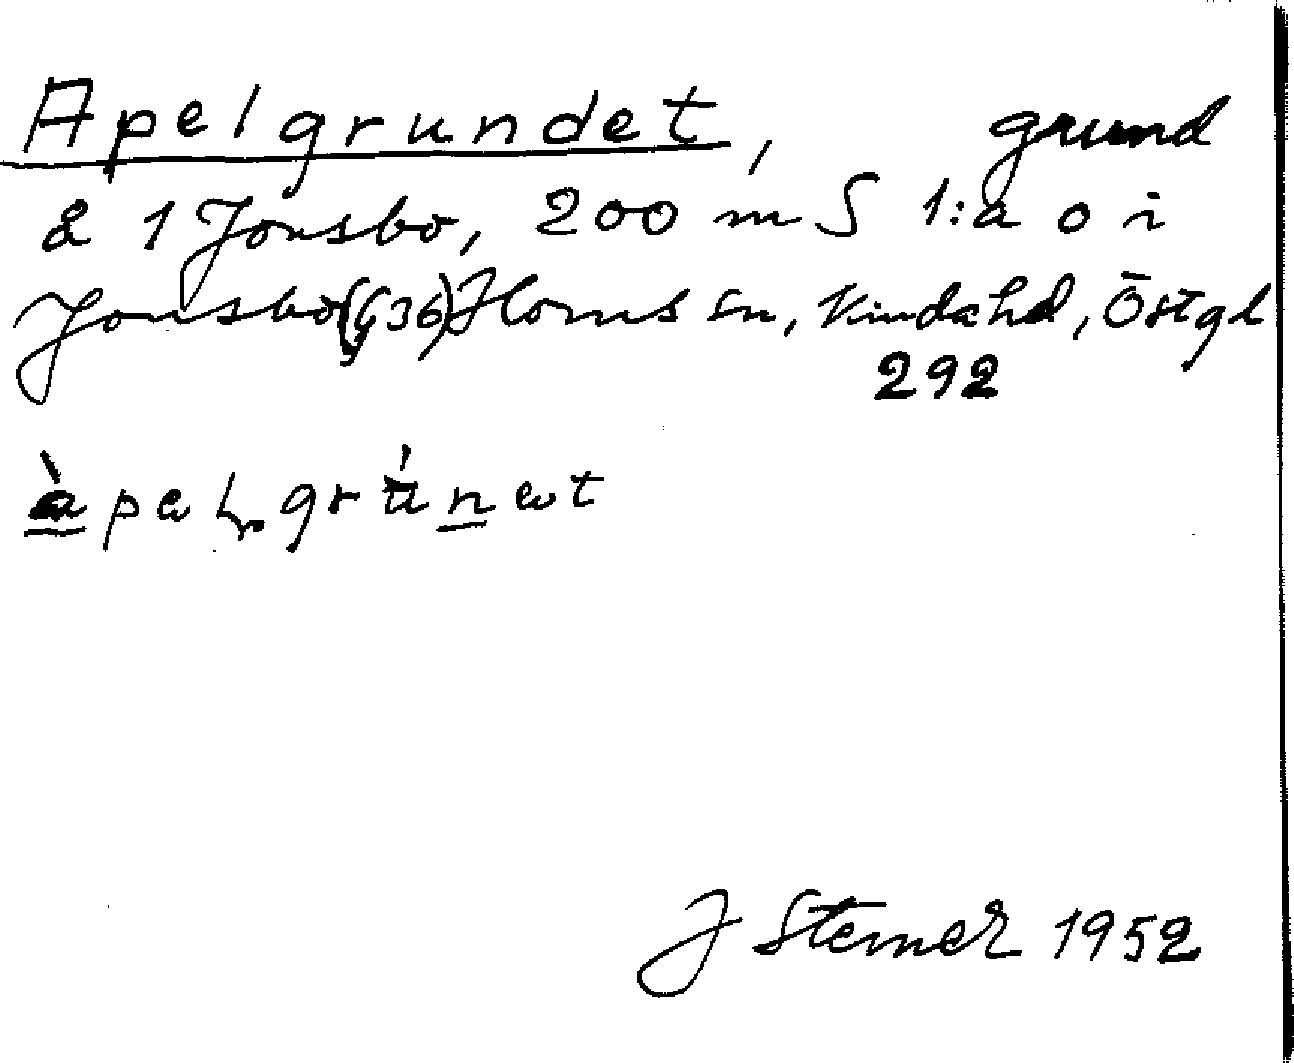 Apelgrundet, grund
å 1 Jonsbo, 200 m S 1:a o i
Jonsbo (636) Horns sn, Kinda hd, Östgl
292
àpel grúnet
J Sterner 1952